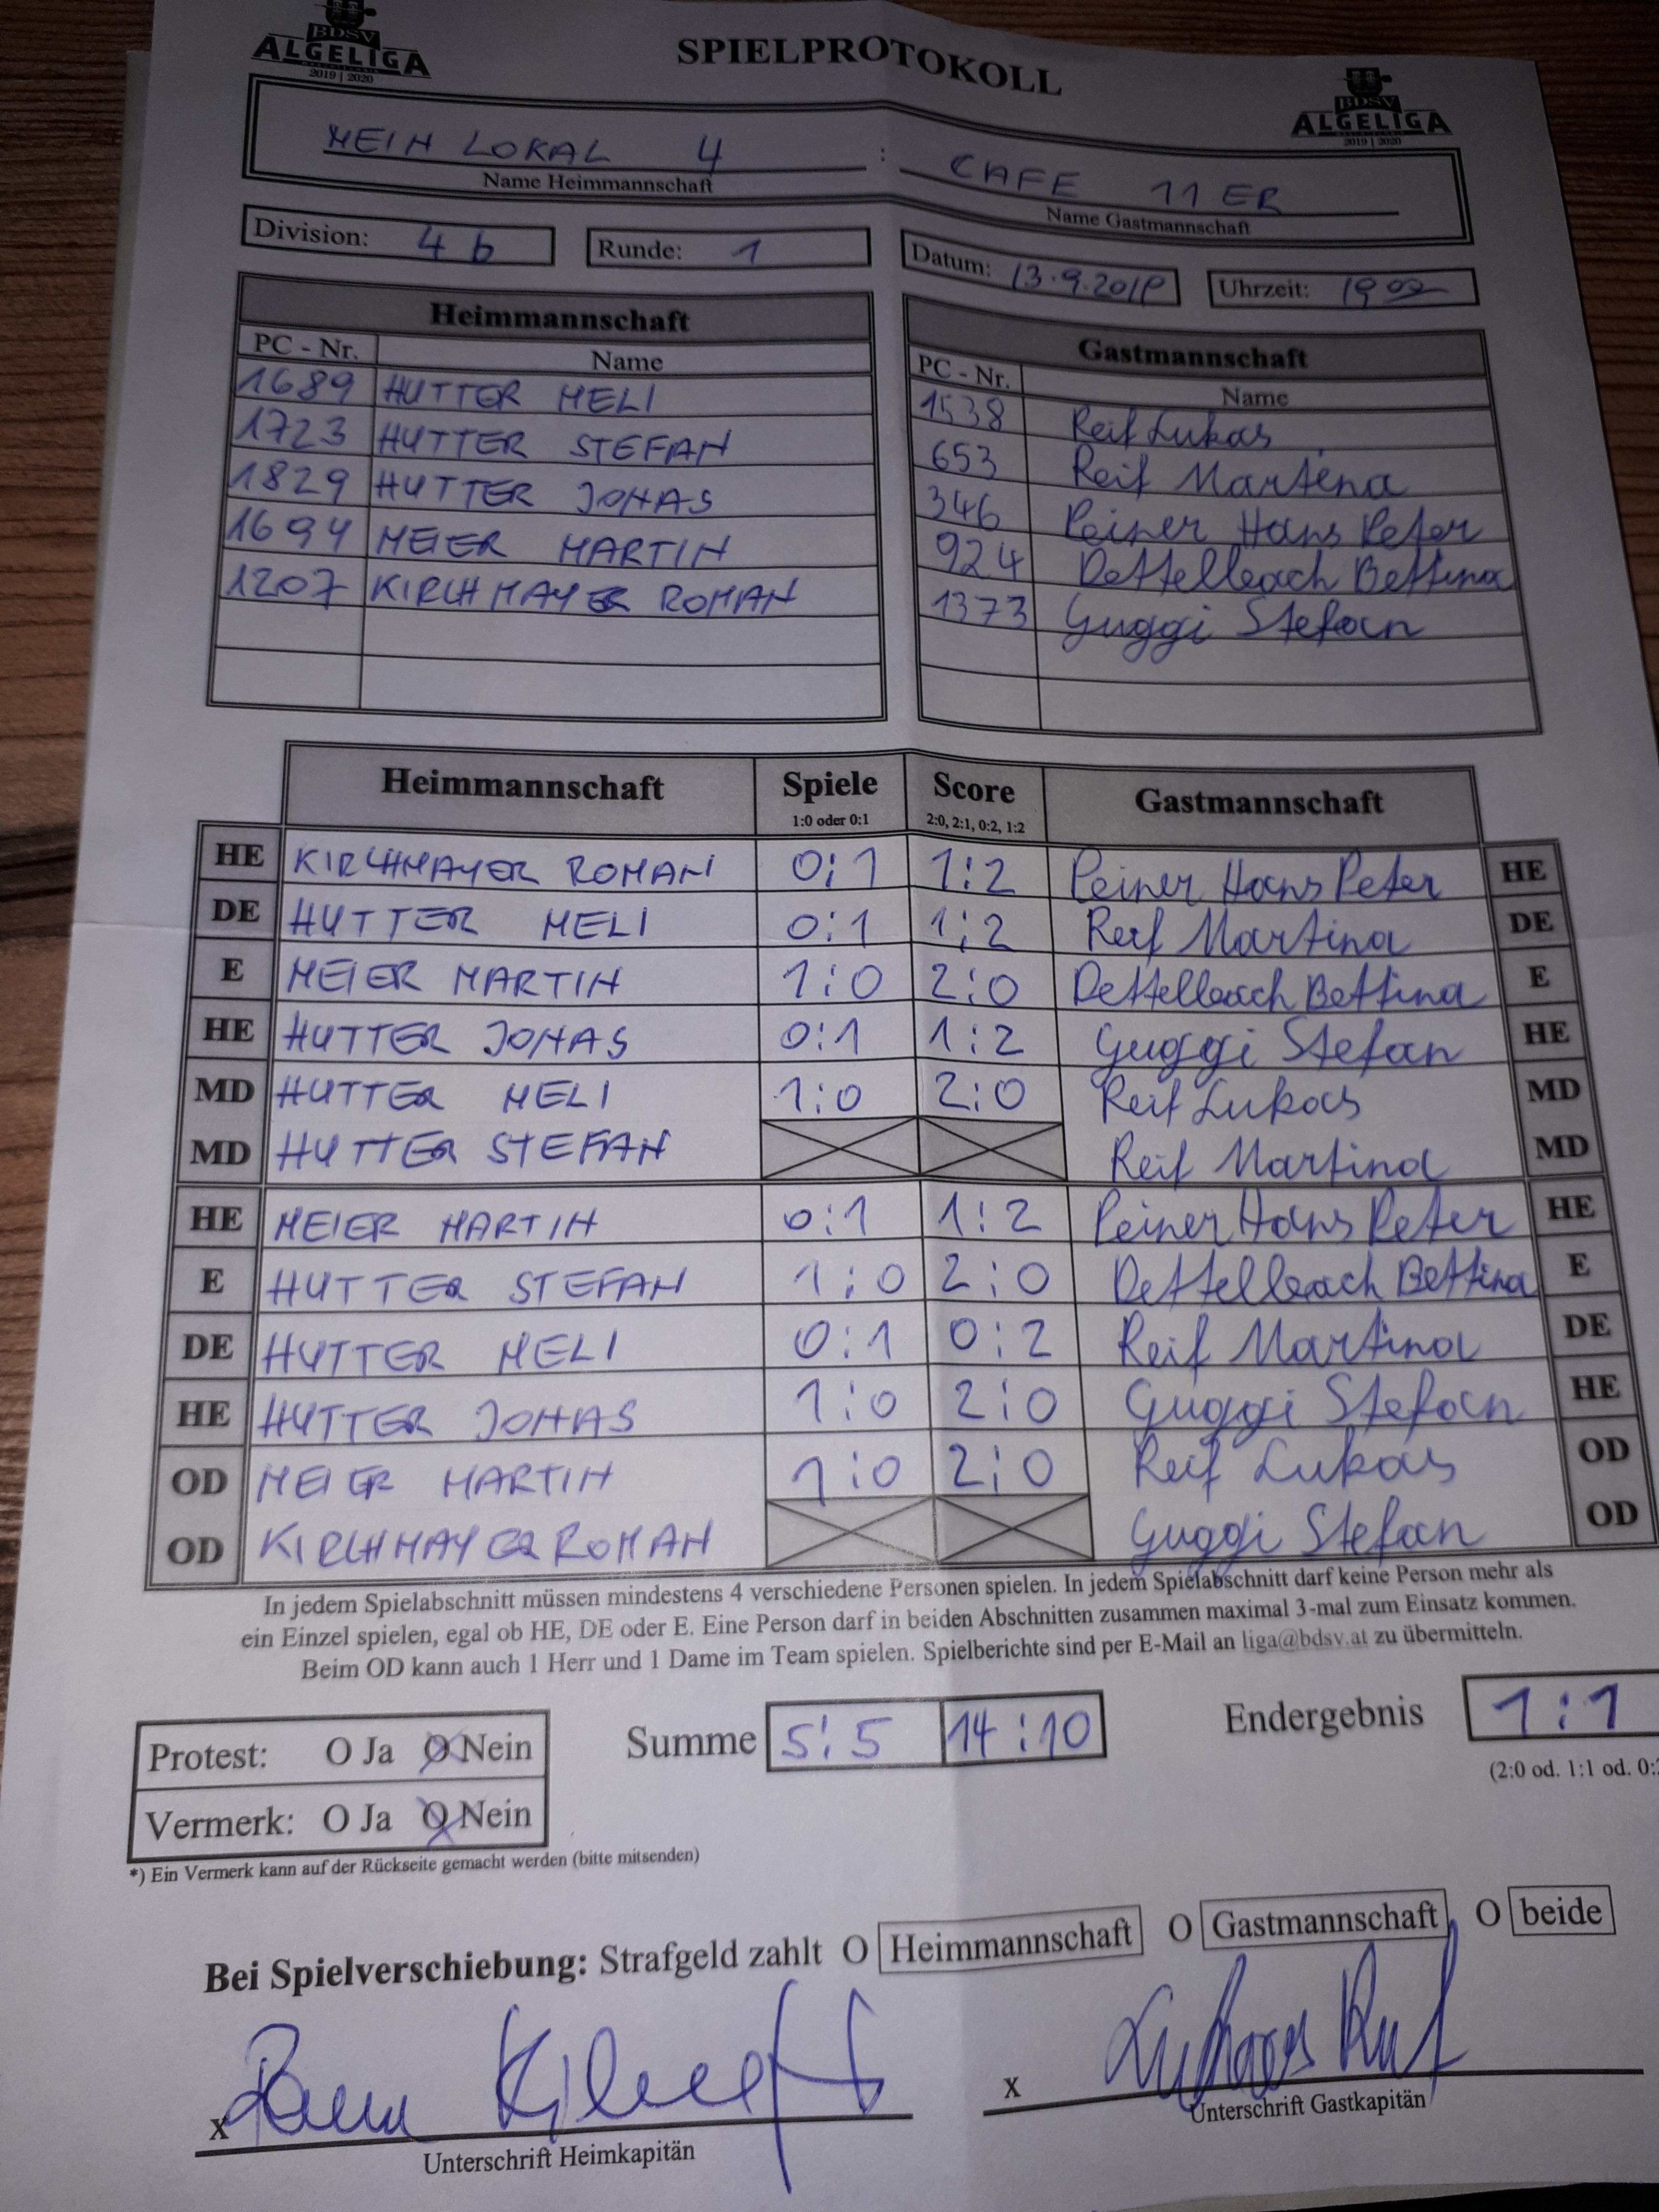 BDSV
ALGELIGA
2019 | 2020
SPIELPROTOKOLL
BDSV
ALGELIGA
2019 | 2020
MEIN LOKAL 4 : CAFE 11ER
Name Heimmannschaft Name Gastmannschaft
Division: 4b Runde: 1 Datum: 13.9.2019 Uhrzeit: 19 00
Heimmannschaft
PC - Nr. Name
1689 HUTTER MELI
1723 HUTTER STEFAN
1829 HUTTER JONAS
1694 MEIER MARTIN
1207 KIRCHMAYER ROMAN
Gastmannschaft
PC - Nr. Name
1538 Reif Lukas
653 Reif Martina
346 Peiner Hans Peter
924 Dettelbach Bettina
1373 Guggi Stefan
Heimmannschaft Spiele Score Gastmannschaft
1:0 oder 0:1 2:0, 2:1, 0:2, 1:2
HE KIRCHMAYER ROMAN 0:1 1:2 Peiner Hans Peter HE
DE HUTTER MELI 0:1 1:2 Reif Martina DE
E MEIER MARTIN 1:0 2:0 Dettelbach Bettina E
HE HUTTER JONAS 0:1 1:2 Guggi Stefan HE
MD HUTTER MELI 1:0 2:0 Reif Lukas MD
MD HUTTER STEFAN Reif Martina MD
HE MEIER MARTIN 0:1 1:2 Peiner Hans Peter HE
E HUTTER STEFAN 1:0 2:0 Dettelbach Bettina E
DE HUTTER MELI 0:1 0:2 Reif Martina DE
HE HUTTER JONAS 1:0 2:0 Guggi Stefan HE
OD MEIER MARTIN 1:0 2:0 Reif Lukas OD
OD KIRCHMAYER ROMAN Guggi Stefan OD
In jedem Spielabschnitt müssen mindestens 4 verschiedene Personen spielen. In jedem Spielabschnitt darf keine Person mehr als
ein Einzel spielen, egal ob HE, DE oder E. Eine Person darf in beiden Abschnitten zusammen maximal 3-mal zum Einsatz kommen.
Beim OD kann auch 1 Herr und 1 Dame im Team spielen. Spielberichte sind per E-Mail an liga@bdsv.at zu übermitteln.
Protest: O Ja O Nein Summe 5:5 14:10 Endergebnis 1:1
Vermerk: O Ja O Nein (2:0 od. 1:1 od. 0:2
*) Ein Vermerk kann auf der Rückseite gemacht werden (bitte mitsenden)
Bei Spielverschiebung: Strafgeld zahlt O Heimmannschaft O Gastmannschaft O beide
x x Lukas Reif
Unterschrift Heimkapitän Unterschrift Gastkapitän